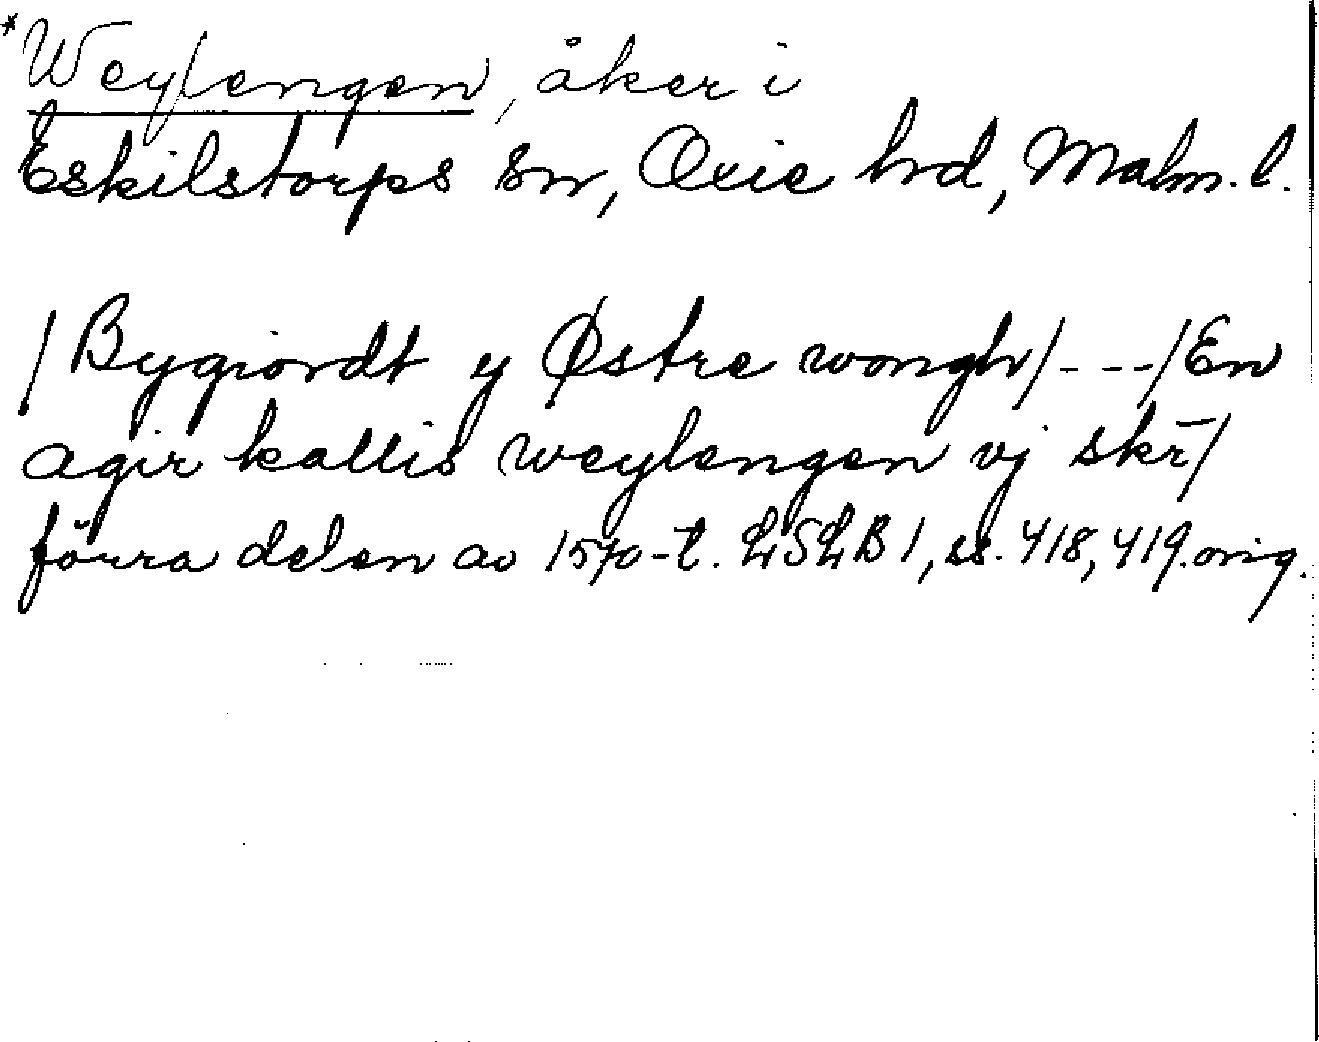 *Weylengen, åker i
Eskilstorps sn, Oxie hd, Malm. l.
/Bygiordt y Østre wongh/---/En
agir kallis weylengen vj skr̄/
förra delen av 1570-t. LSLB 1, ss. 418, 419. orig.